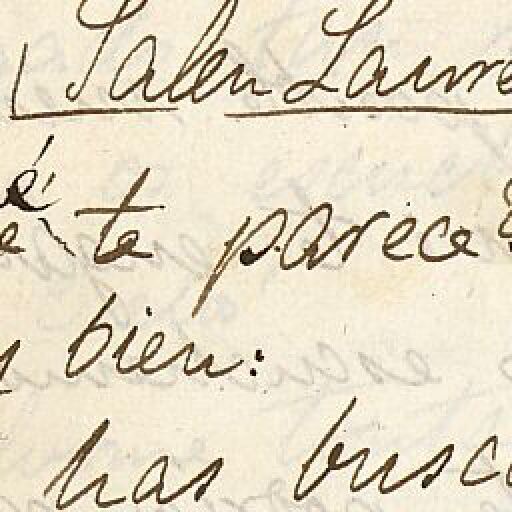 Salen Laure
é
e te parece?
y bien:
has busca